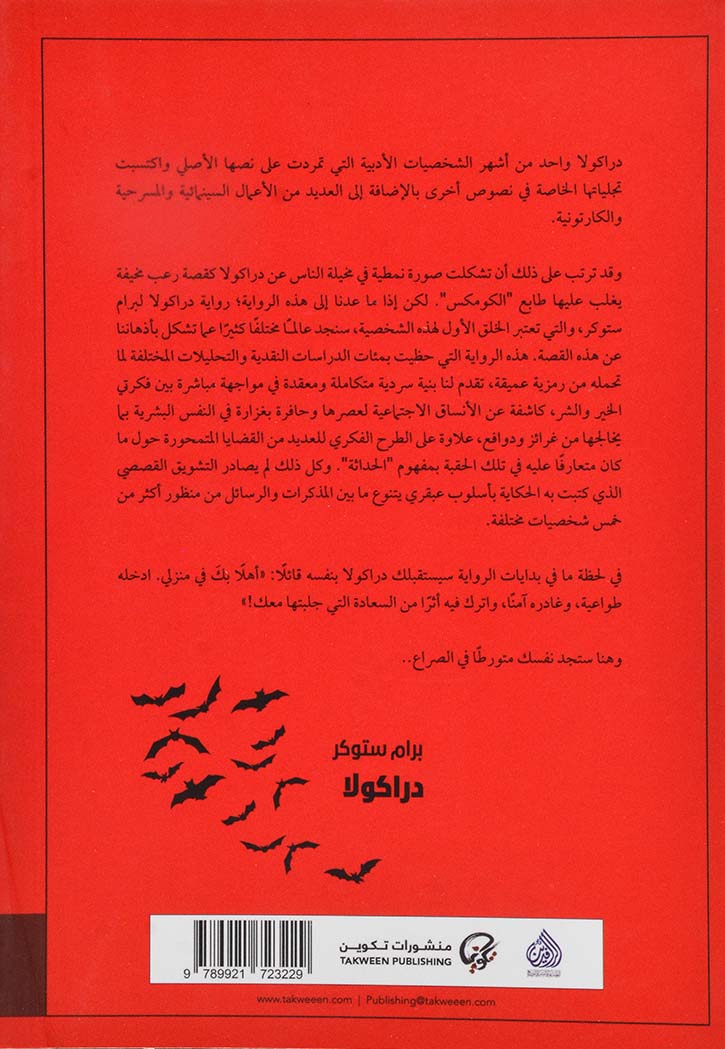 دراكولا واحد من أشهر الشخصيات الأدبية التي تمردت على نصها الأصلي واكتسبت
تجلياتها الخاصة في نصوص أخرى بالإضافة إلى العديد من الأعمال السينمائية والمسرحية
والكارتونية.
وقد ترتب على ذلك أن تشكلت صورة نمطية في مخيلة الناس عن دراكولا كقصة رعب مخيفة
يغلب عليها طابع "الكومكس". لكن إذا ما عدنا إلى هذه الرواية؛ رواية دراكولا لبرام
ستوكر، والتي تعتبر الخلق الأول لهذه الشخصية، سنجد عالمًا مختلفًا كثيرًا عما تشكل بأذهاننا
عن هذه القصة. هذه الرواية التي حظيت بمئات الدراسات النقدية والتحليلات المختلفة لما
تحمله من رمزية عميقة، تقدم لنا بنية سردية متكاملة ومعقدة في مواجهة مباشرة بين فكرتي
الخير والشر، كاشفة عن الأنساق الاجتماعية لعصرها وحافرة بغزارة في النفس البشرية بما
يخالجها من غرائز ودوافع، علاوة على الطرح الفكري للعديد من القضايا المتمحورة حول ما
كان متعارفًا عليه في تلك الحقبة بمفهوم "الحداثة". وكل ذلك لم يصادر التشويق القصصي
الذي كتبت به الحكاية بأسلوب عبقري يتنوع ما بين المذكرات والرسائل من منظور أكثر من
خمس شخصيات مختلفة.
في لحظة ما في بدايات الرواية سيستقبلك دراكولا بنفسه قائلًا: «أهلًا بكَ في منزلي. ادخله
طواعية، وغادره آمنًا، واترك فيه أثرًا من السعادة التي جلبتها معك!»
وهنا ستجد نفسك متورطًا في الصراع..
برام ستوكر
دراكولا
منشورات تكوين
TAKWEEN PUBLISHING
تكوين
الرافدين
9 789921 723229
www.takweeen.com | Publishing@takweeen.com